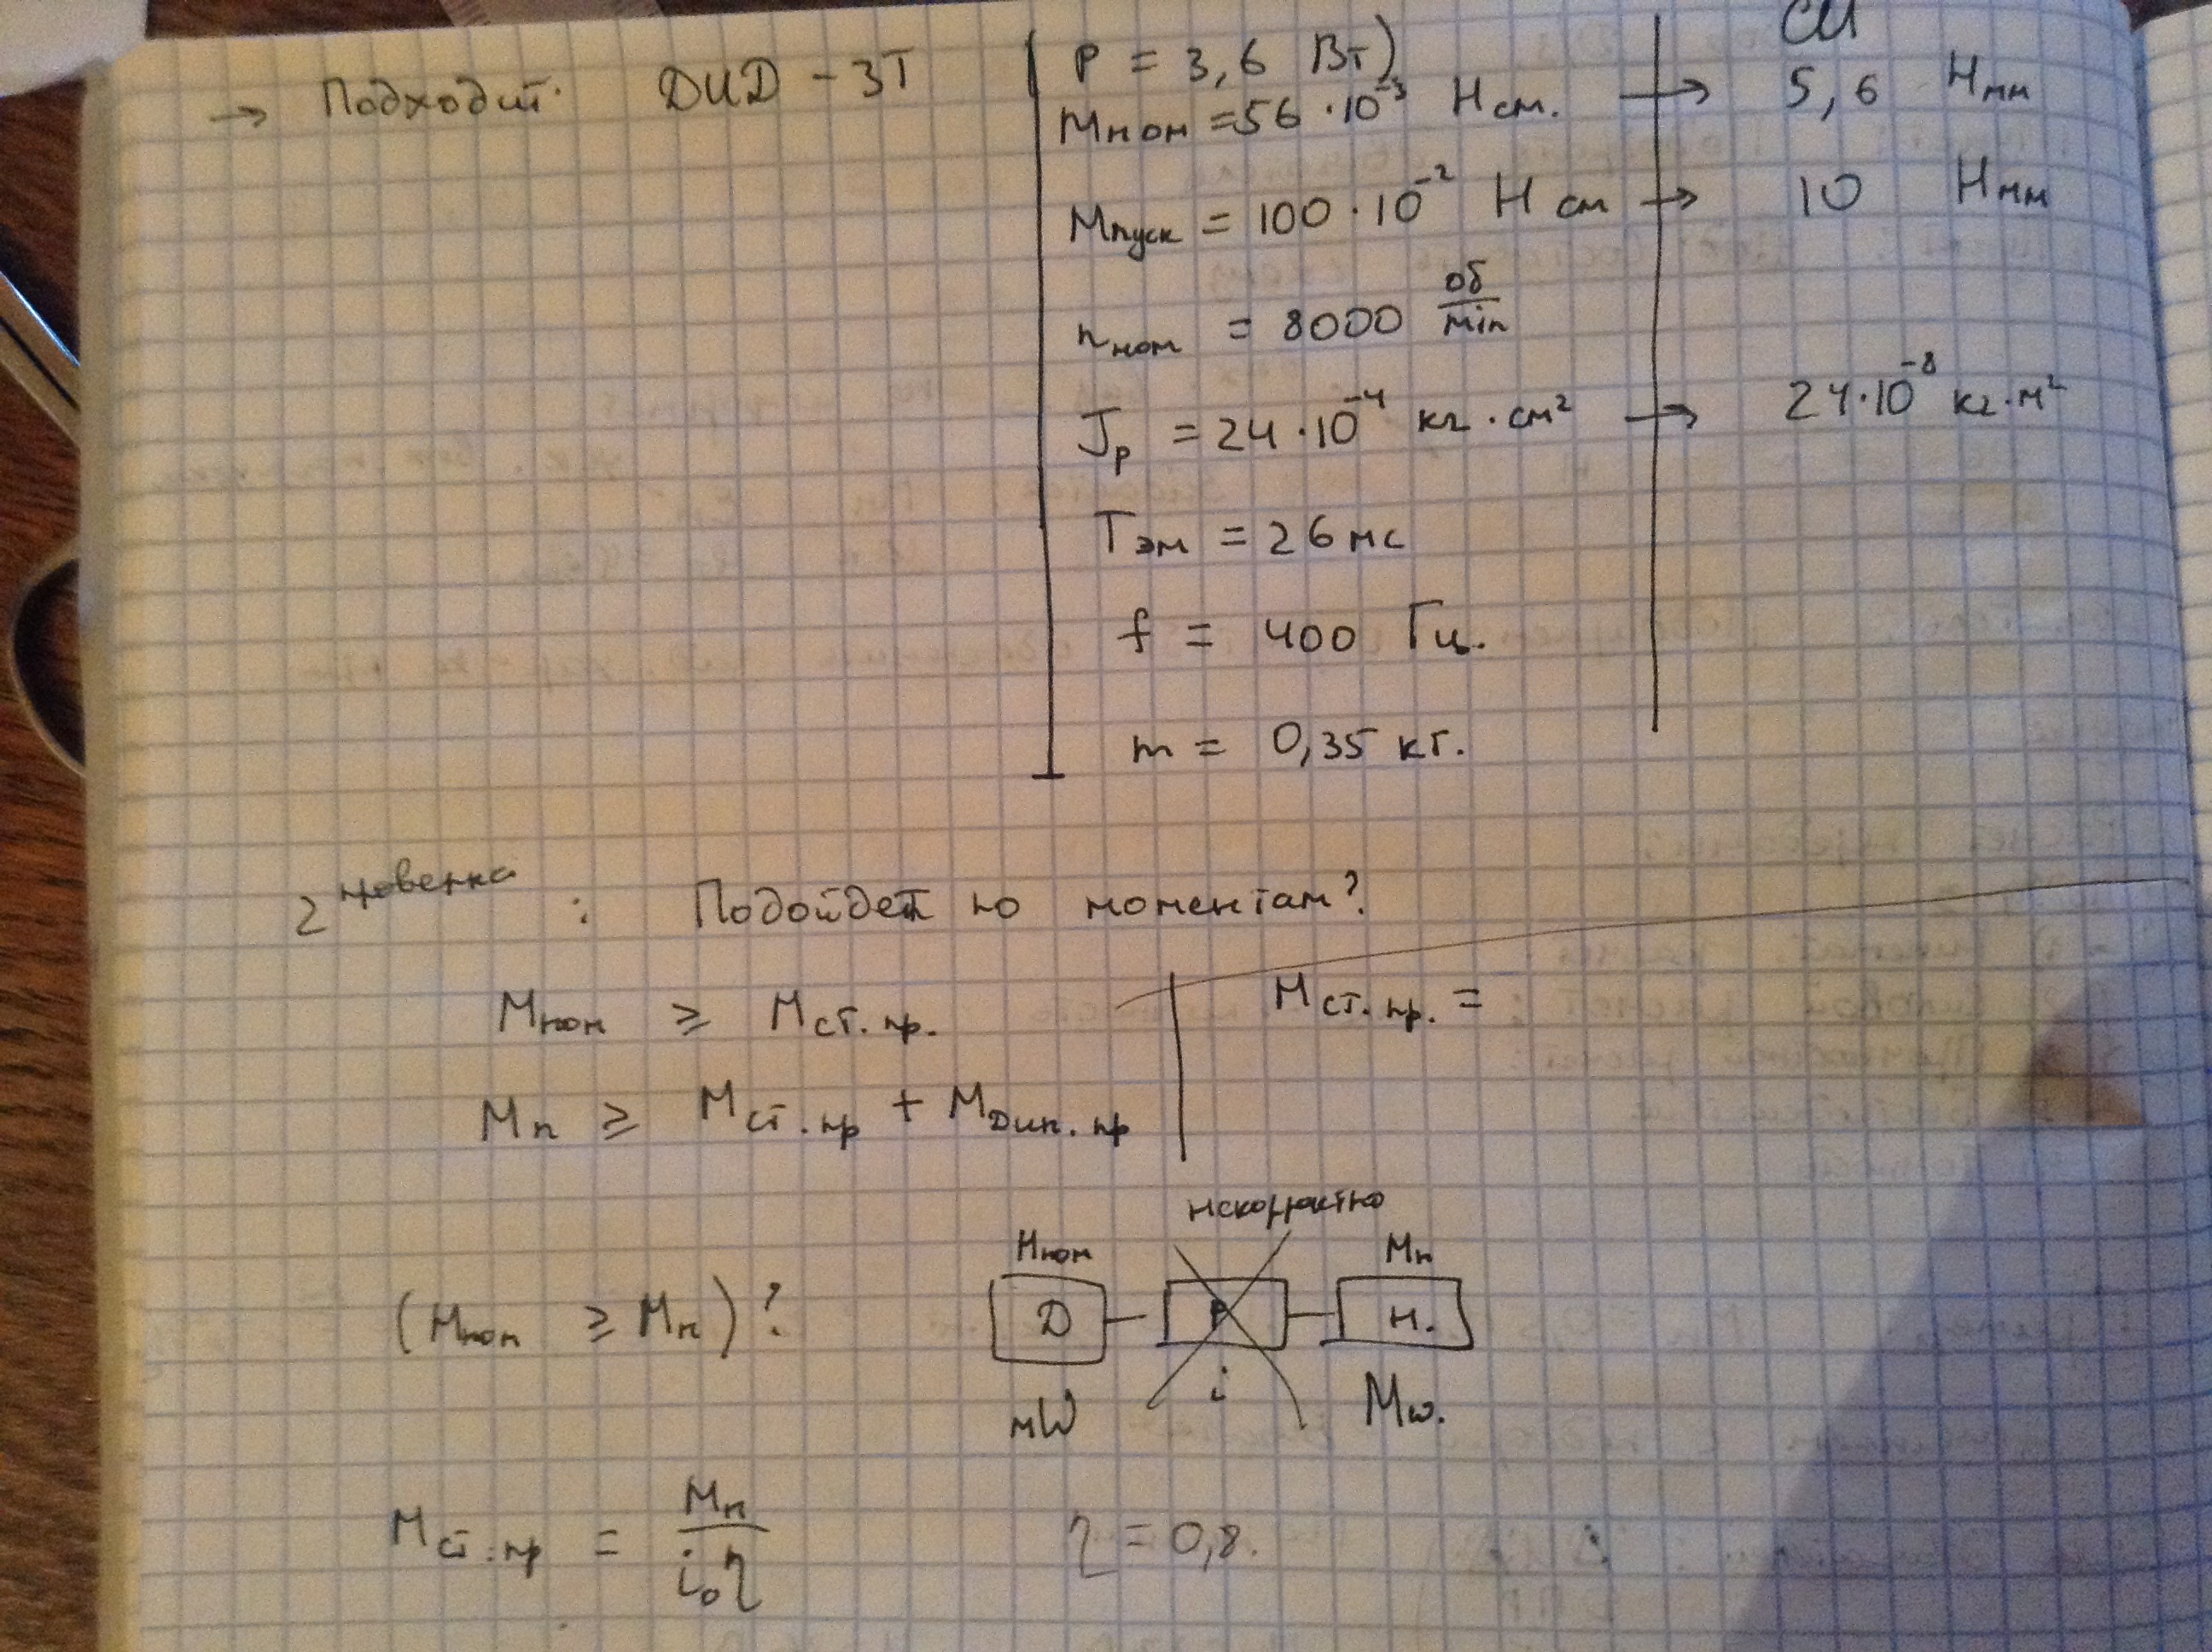 → Подходит: ДИД - 3Т
P = 3,6 Вт)
СИ
Mном = 56 · 10⁻³ Н см. → 5,6 Нмм
Mпуск = 100 · 10⁻² Н см → 10 Нмм
nном = 8000 об/min
Jр = 24 · 10⁻⁴ кг · см² → 24·10⁻⁸ кг·м²
Tэм = 26 мс
f = 400 Гц.
m = 0,35 кг.
2 проверка : Подойдет по моментам?
Mном ≥ Mст. пр.
Mст. пр. =
Mп ≥ Mст. пр + Mдин. пр
некорректно
Mном Mн
(Mном ≥ Mн)? D P Н.
мW i Mω.
Mст. пр = Mн / i₀η η = 0,8.